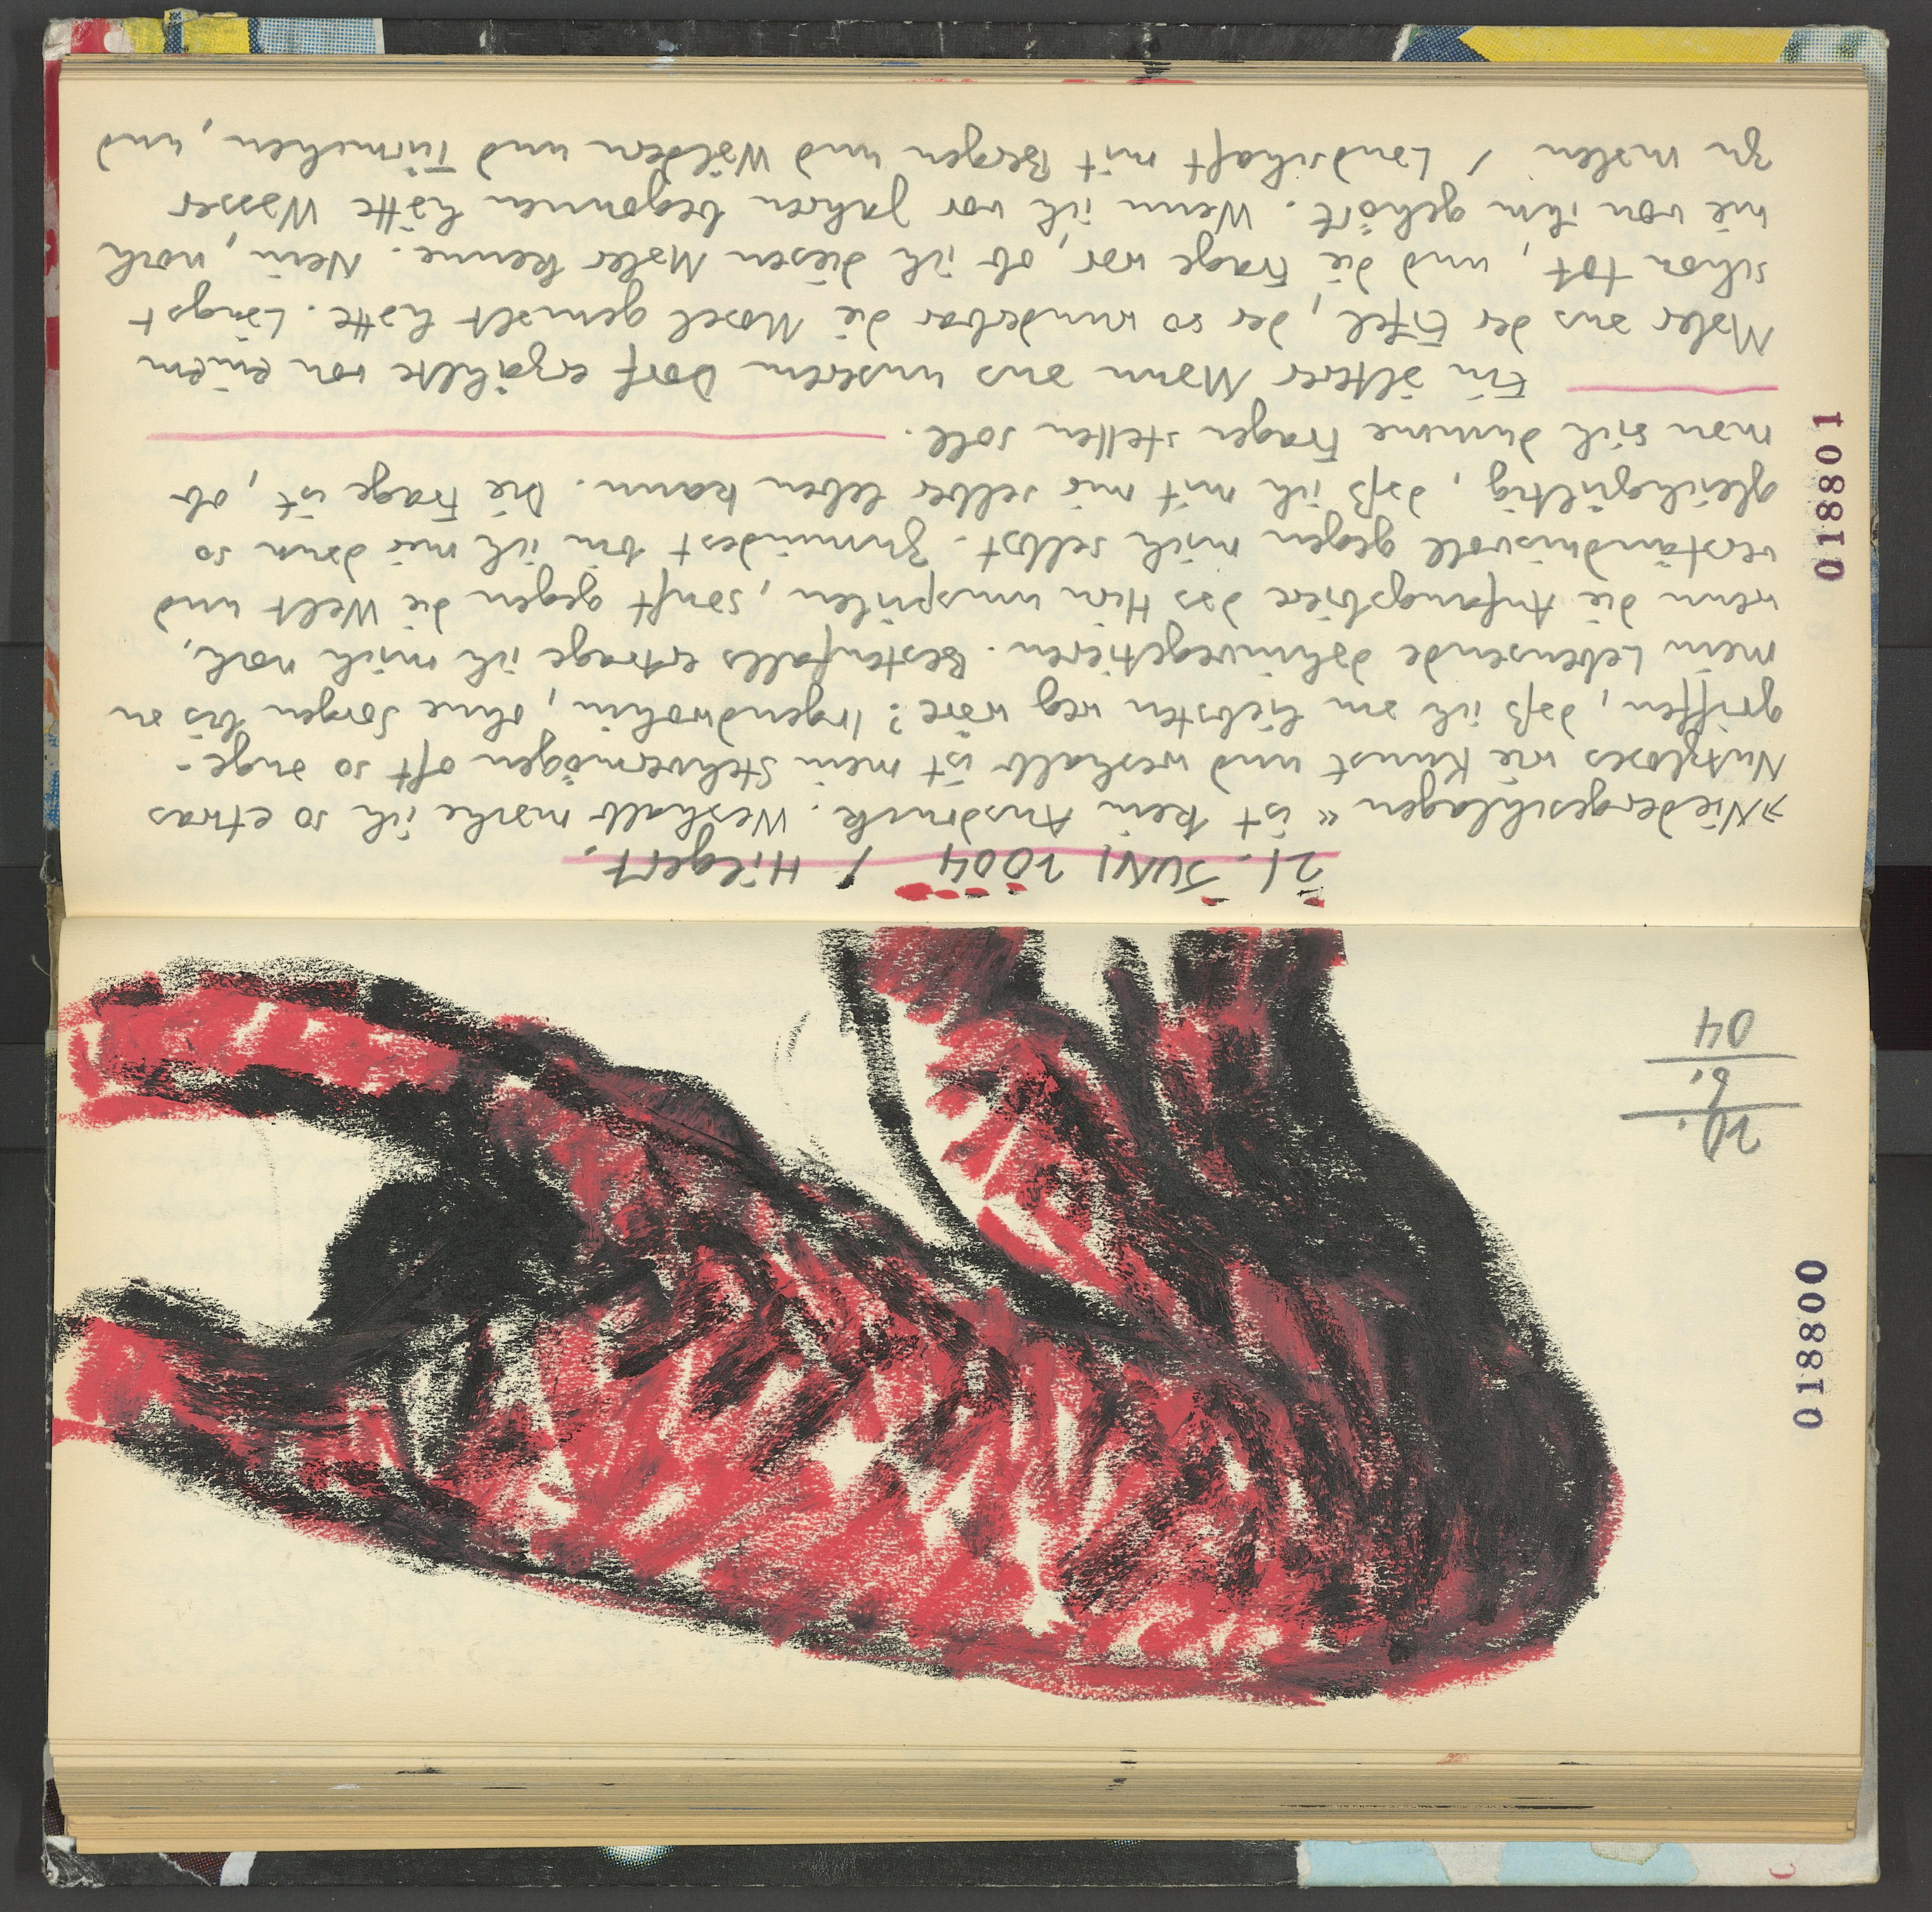 20.
6.
04
018800
21. JUNI 2004 / Hilgert.
»Niedergeschlagen« ist kein Ausdruck. Weshalb mache ich so etwas
Nutzloses wie Kunst und weshalb ist mein Stehvermögen oft so ange-
griffen, daß ich am liebsten weg wäre? Irgendwohin, ohne Sorgen bis an
mein Lebensende dahinvegetieren. Bestenfalls ertrage ich mich noch,
wenn die Anfangsbiere das Hirn umspülen, sanft gegen die Welt und
verständnisvoll gegen mich selbst. Zumindest bin ich mir dann so
gleichgültig, daß ich mit mir selber leben kann. Die Frage ist, ob
man sich dumme Fragen stellen soll.
Ein älterer Mann aus unserem Dorf erzählte von einem
Maler aus der Eifel, der so wunderbar die Mosel gemalt hätte. Längst
schon tot, und die Frage war, ob ich diesen Maler kenne. Nein, noch
nie von ihm gehört. Wenn ich vor Jahren begonnen hätte Wasser
zu malen / Landschaft mit Bergen und Wäldern und Türmchen, und
018801